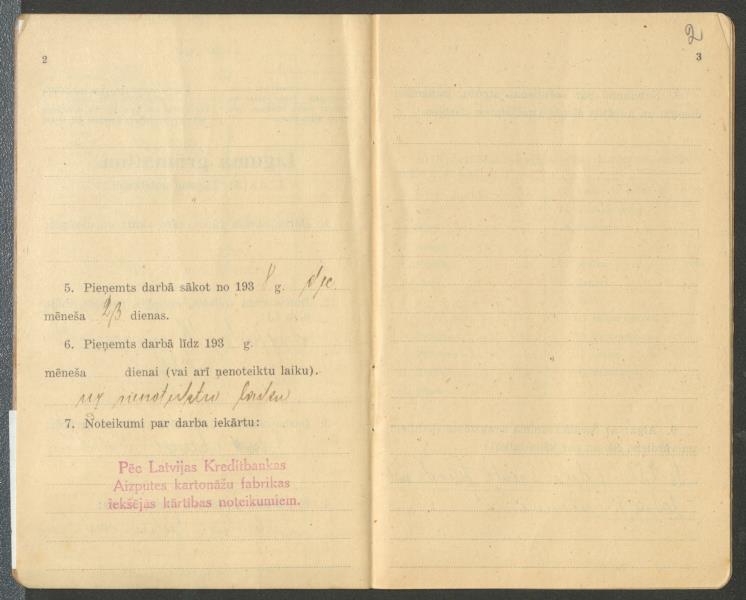 2
5. Pieņemts darbā sākot no 1938 g. dec.
mēneša 23 dienas.
6. Pieņemts darbā līdz 193 g.
mēneša dienai (vai arī nenoteiktu laiku).
uz nenoteiktu laiku
7. Noteikumi par darba iekārtu:
Pēc Latvijas Kredītbankas
Aizputes kartonāžu fabrikas
iekšējas kārtības noteikumiem.
2
3